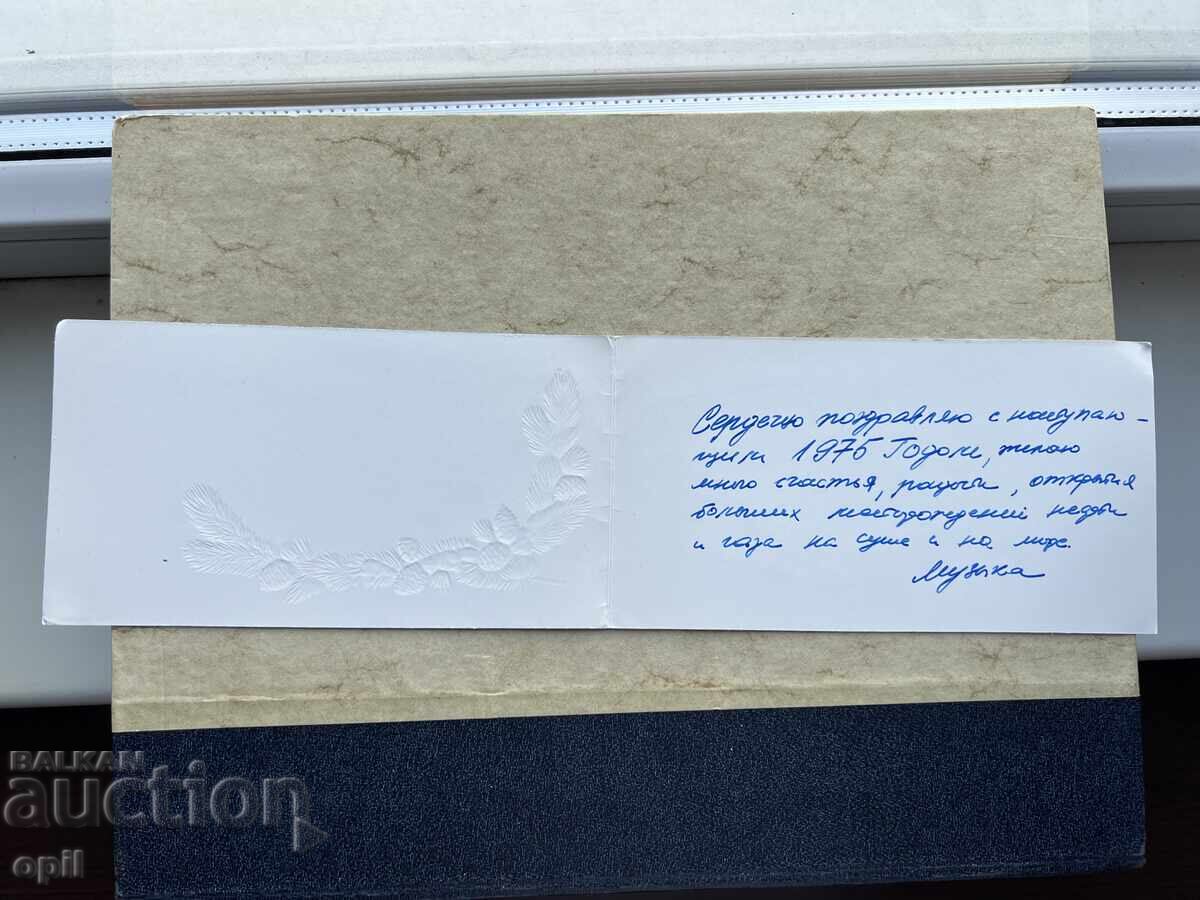 Сердечно поздравляю с наступаю-
щим 1975 Годом, желаю
много счастья, радости, открытия
больших месторождений нефти
и газа на суше и на море.
Музыка
BALKAN
auction
opil